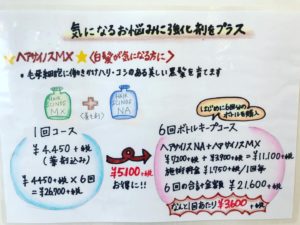 気になるお悩みに強化剤をプラス
ヘアサイノスMX <白髪が気になる方に>
・毛母細胞に働きかけハリ・コシのある美しい黒髪を育てます
HAIR
SCINOS
MX
+
HAIR
SCINOS
NA
(普剤)
はじめに6回分の
ボトルを購入
1回コース
¥4,450+税
(薬剤込み)
¥4450+税×6回
=¥26,700+税
¥5100+税
お得に!!
6回ボトルキープコース
ヘアサイノスNA+ヘアサイノスMX
¥7200+税 + ¥3900+税=¥11,100+税
施術料金 ¥1,750+税/1回毎
6回の合計金額 ¥21,600+税
なんと1回あたり¥3600+税